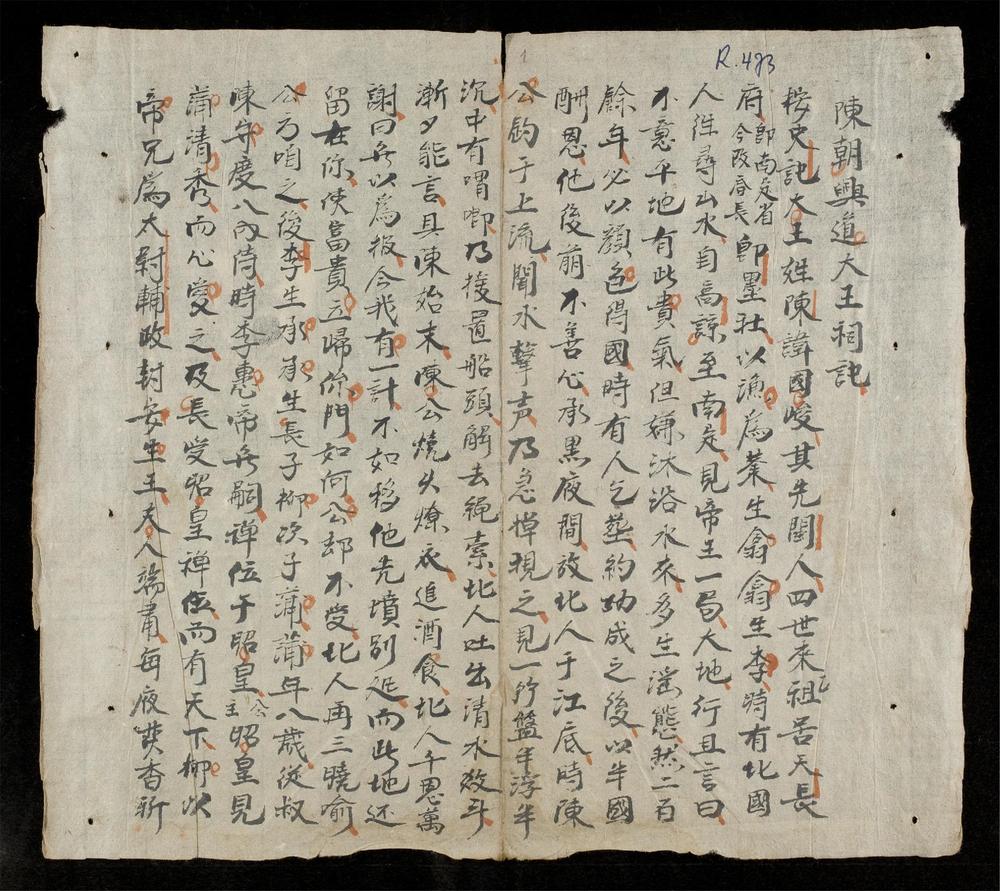 R.483
1
陳朝興道大王祠記
按史記大王姓陳諱國峻其先閩人四世來祖居天長
府即南定省今改春長即墨社以漁爲業生翕翕生李時有北國
人往尋山水自高諒至南定見帝王一局大地行且言曰
不意平地有此貴氣但嫌汰浴水來多生滛態然二百
餘年必以顔色得國時有人乞塟約功成之後以半國
酬恩他後萠不善心承黒夜間放北人于江底時陳
公釣于上流聞水擊声乃急掉視之見一竹盤半浮半
沉中有喟唧乃援置船頭觧去䋲索北人吐出清水数斗
漸夕能言具陳始末陳公燒火燎衣進酒食北人千恩萬
謝曰無以為报今我有一計不如移他先墳别処而此地还
留在你使富貴立歸你門如何公却不受北人再三曉喻
公乃咱之後李生承承生長子柳次子蒲蒲年八歲從叔
陳守度入内侍時李惠帝無嗣禅位于昭皇公主昭皇見
蒲清秀而心愛之及長受昭皇禅位而有天下柳以
帝兄爲太尉輔政封安生王夫人端肅每夜焚香祈